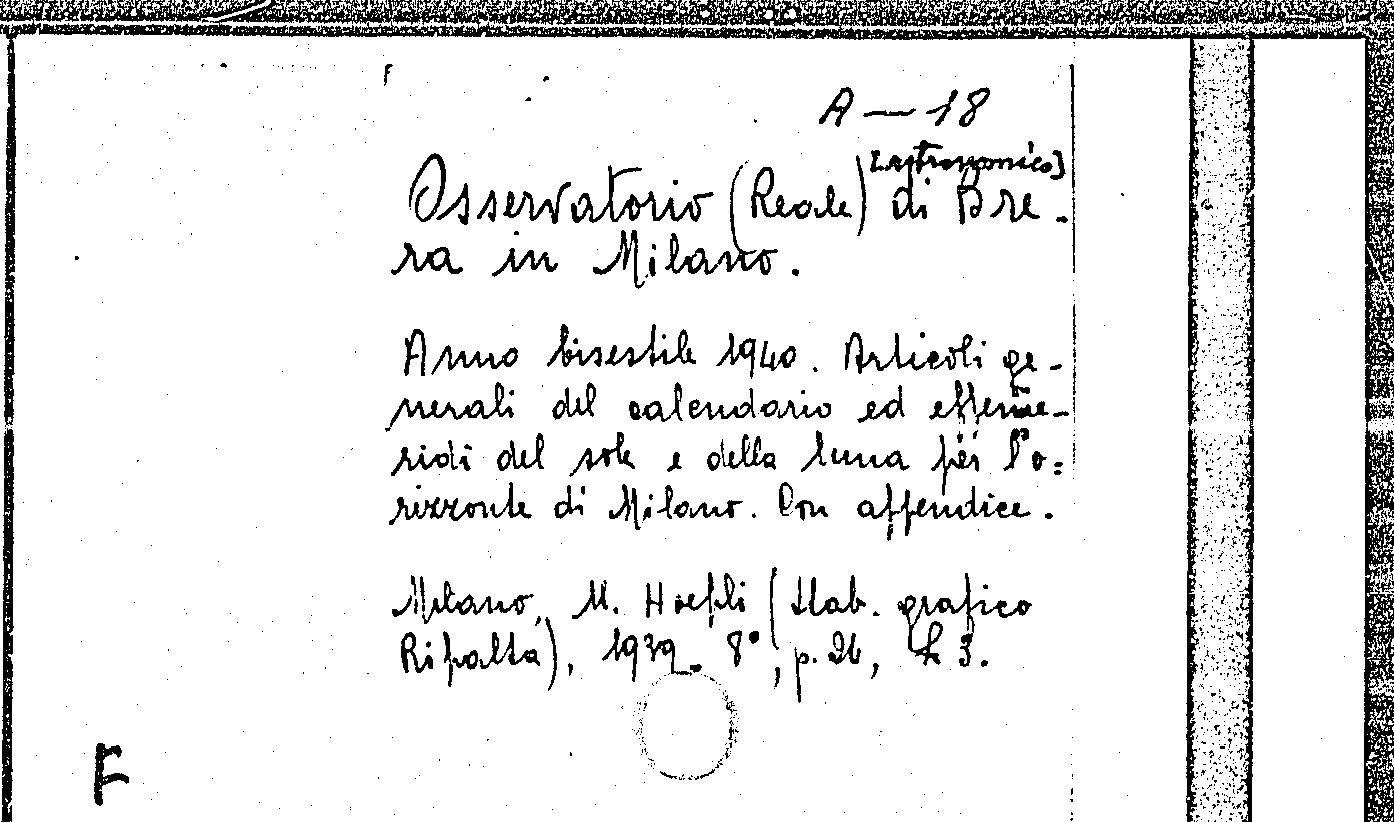 A — 18
[astronomico]
Osservatorio (Reale) di Bre-
ra in Milano.
Anno bisestile 1940. Articoli ge-
nerali del calendario ed effeme-
ridi del sole e della luna per l'o=
rizzonte di Milano. Con appendice.
Milano, U. Hoepli (Stab. grafico
Ripalta), 1939. 8°, p. 26, £ 3.
F